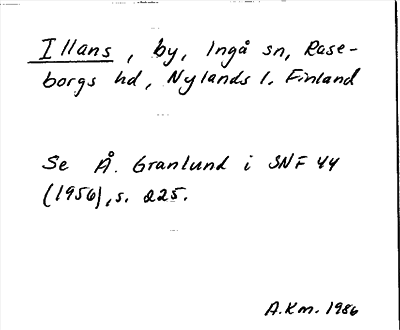 Illans, by, Ingå sn, Rase-
borgs hd, Nylands l. Finland
Se Å. Granlund i SNF 44
(1956), s. 225.
A.Km. 1986